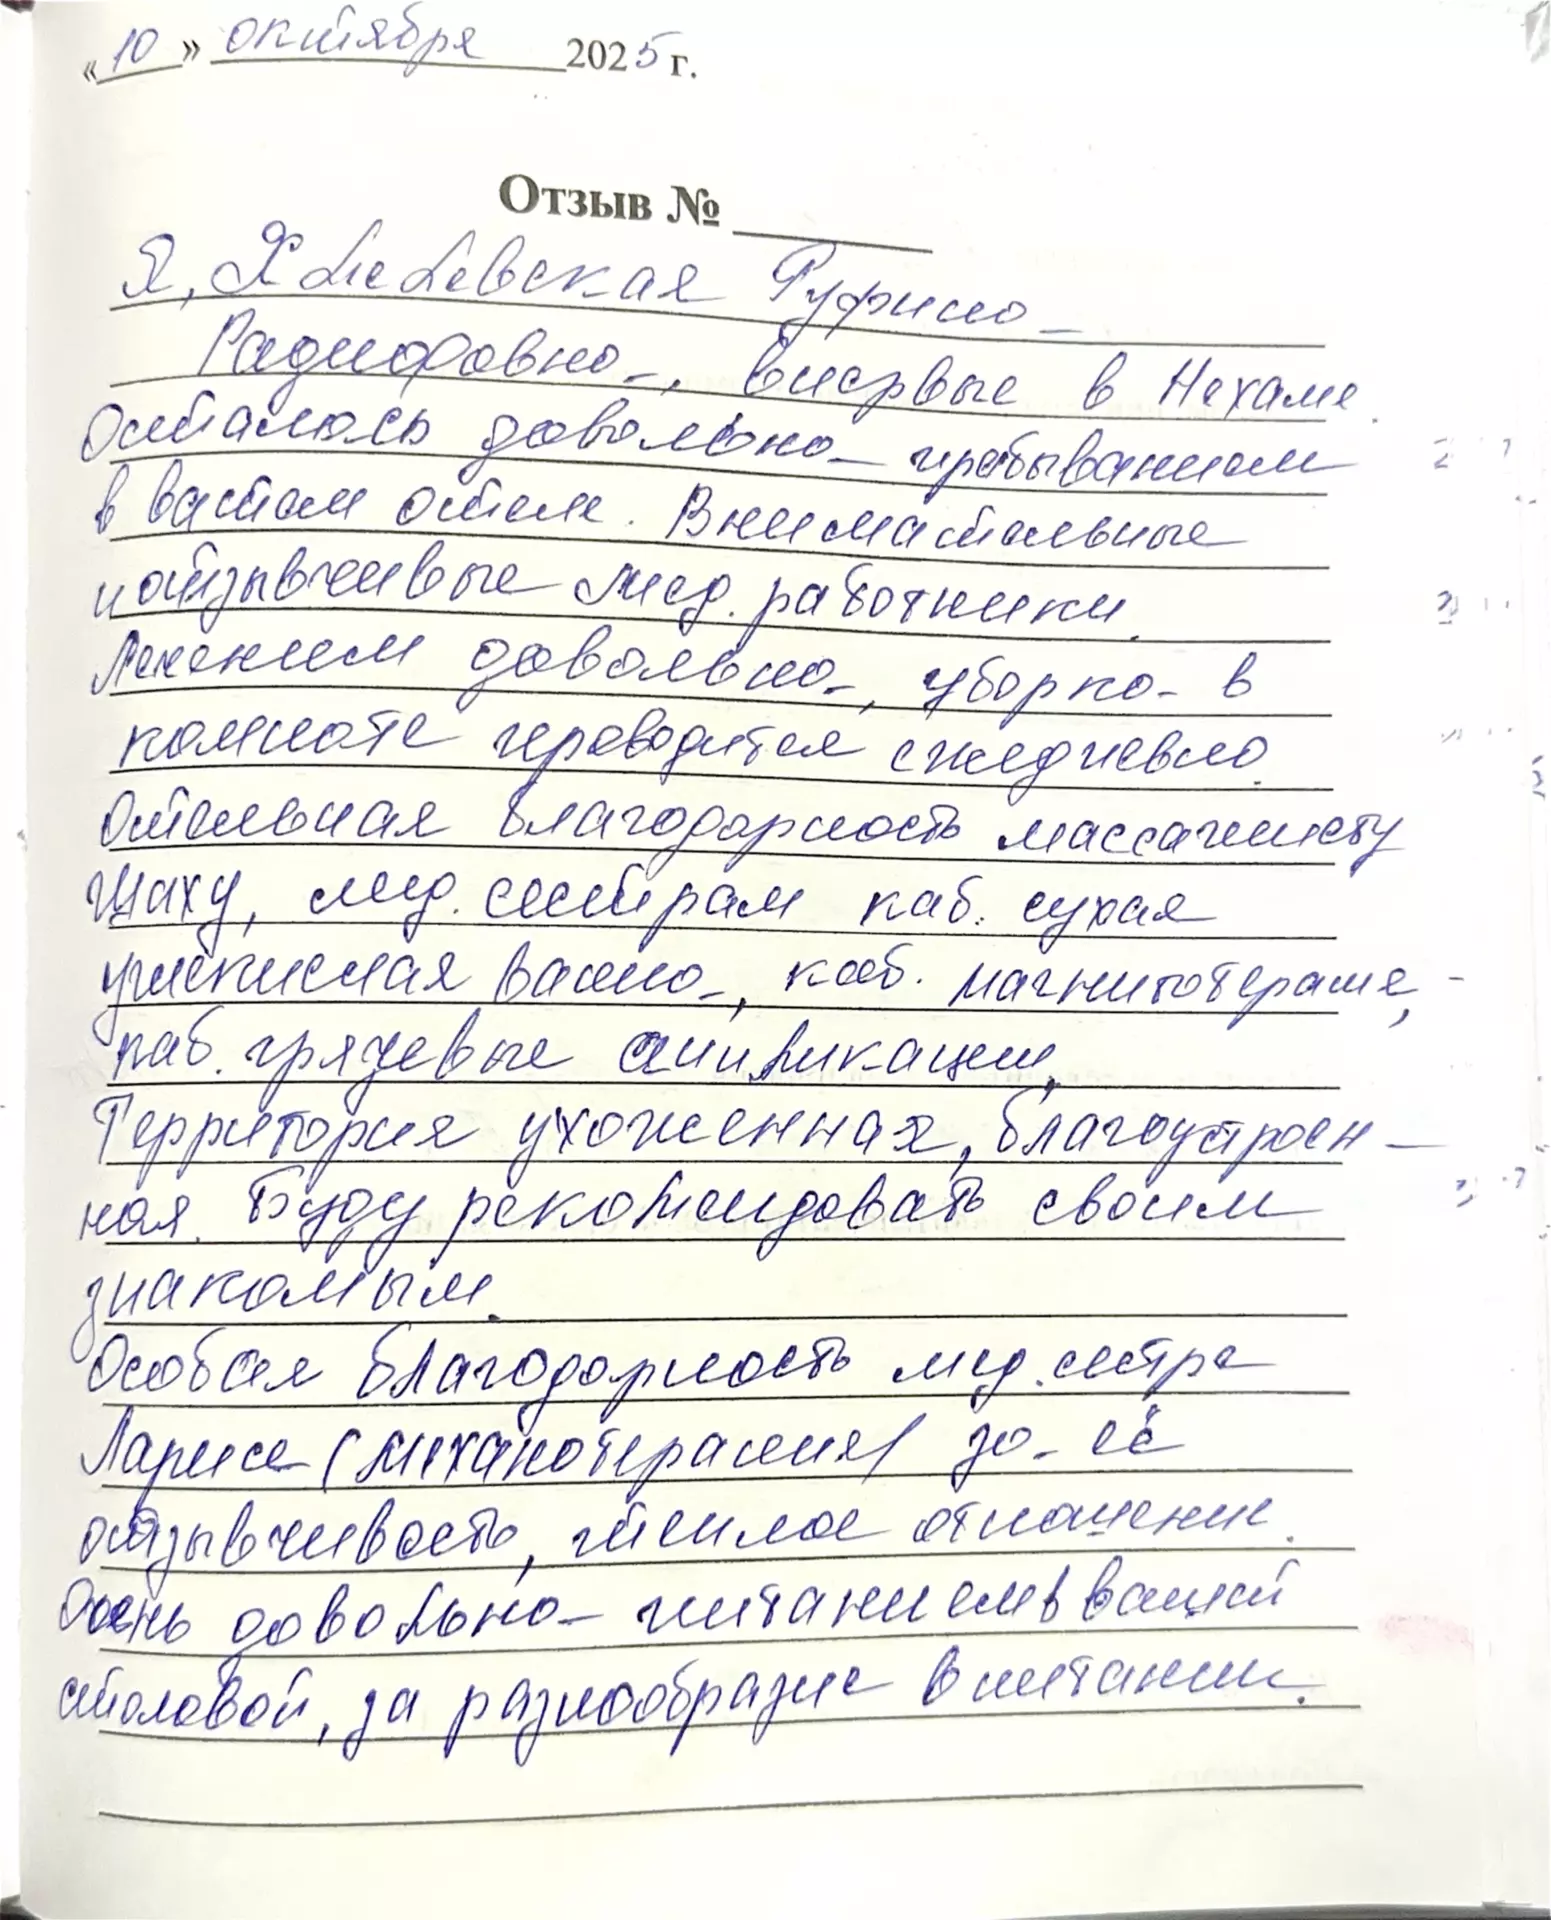 «10» октября 2025 г.
Отзыв №
Я, Хмелевская Руфина
Радифовна, впервые в Нехаме.
Осталась довольна пребыванием
в вашем отеле. Внимательные
и отзывчивые мед. работники.
Лечением довольна, уборка в
комнате проводится ежедневно.
Отдельная благодарность массажисту
Шаху, мед. сестрам каб. сухая
углекислая ванна, каб. магнитотерапие,
каб. грязевые аппликации.
Территория ухоженная, благоустроен-
ная. Буду рекомендовать своим
знакомым.
Особая благодарность мед. сестре
Ларисе (механотерапия) за её
отзывчивость, тёплое отношение.
Очень довольна питанием в вашей
столовой, за разнообразие в питании.